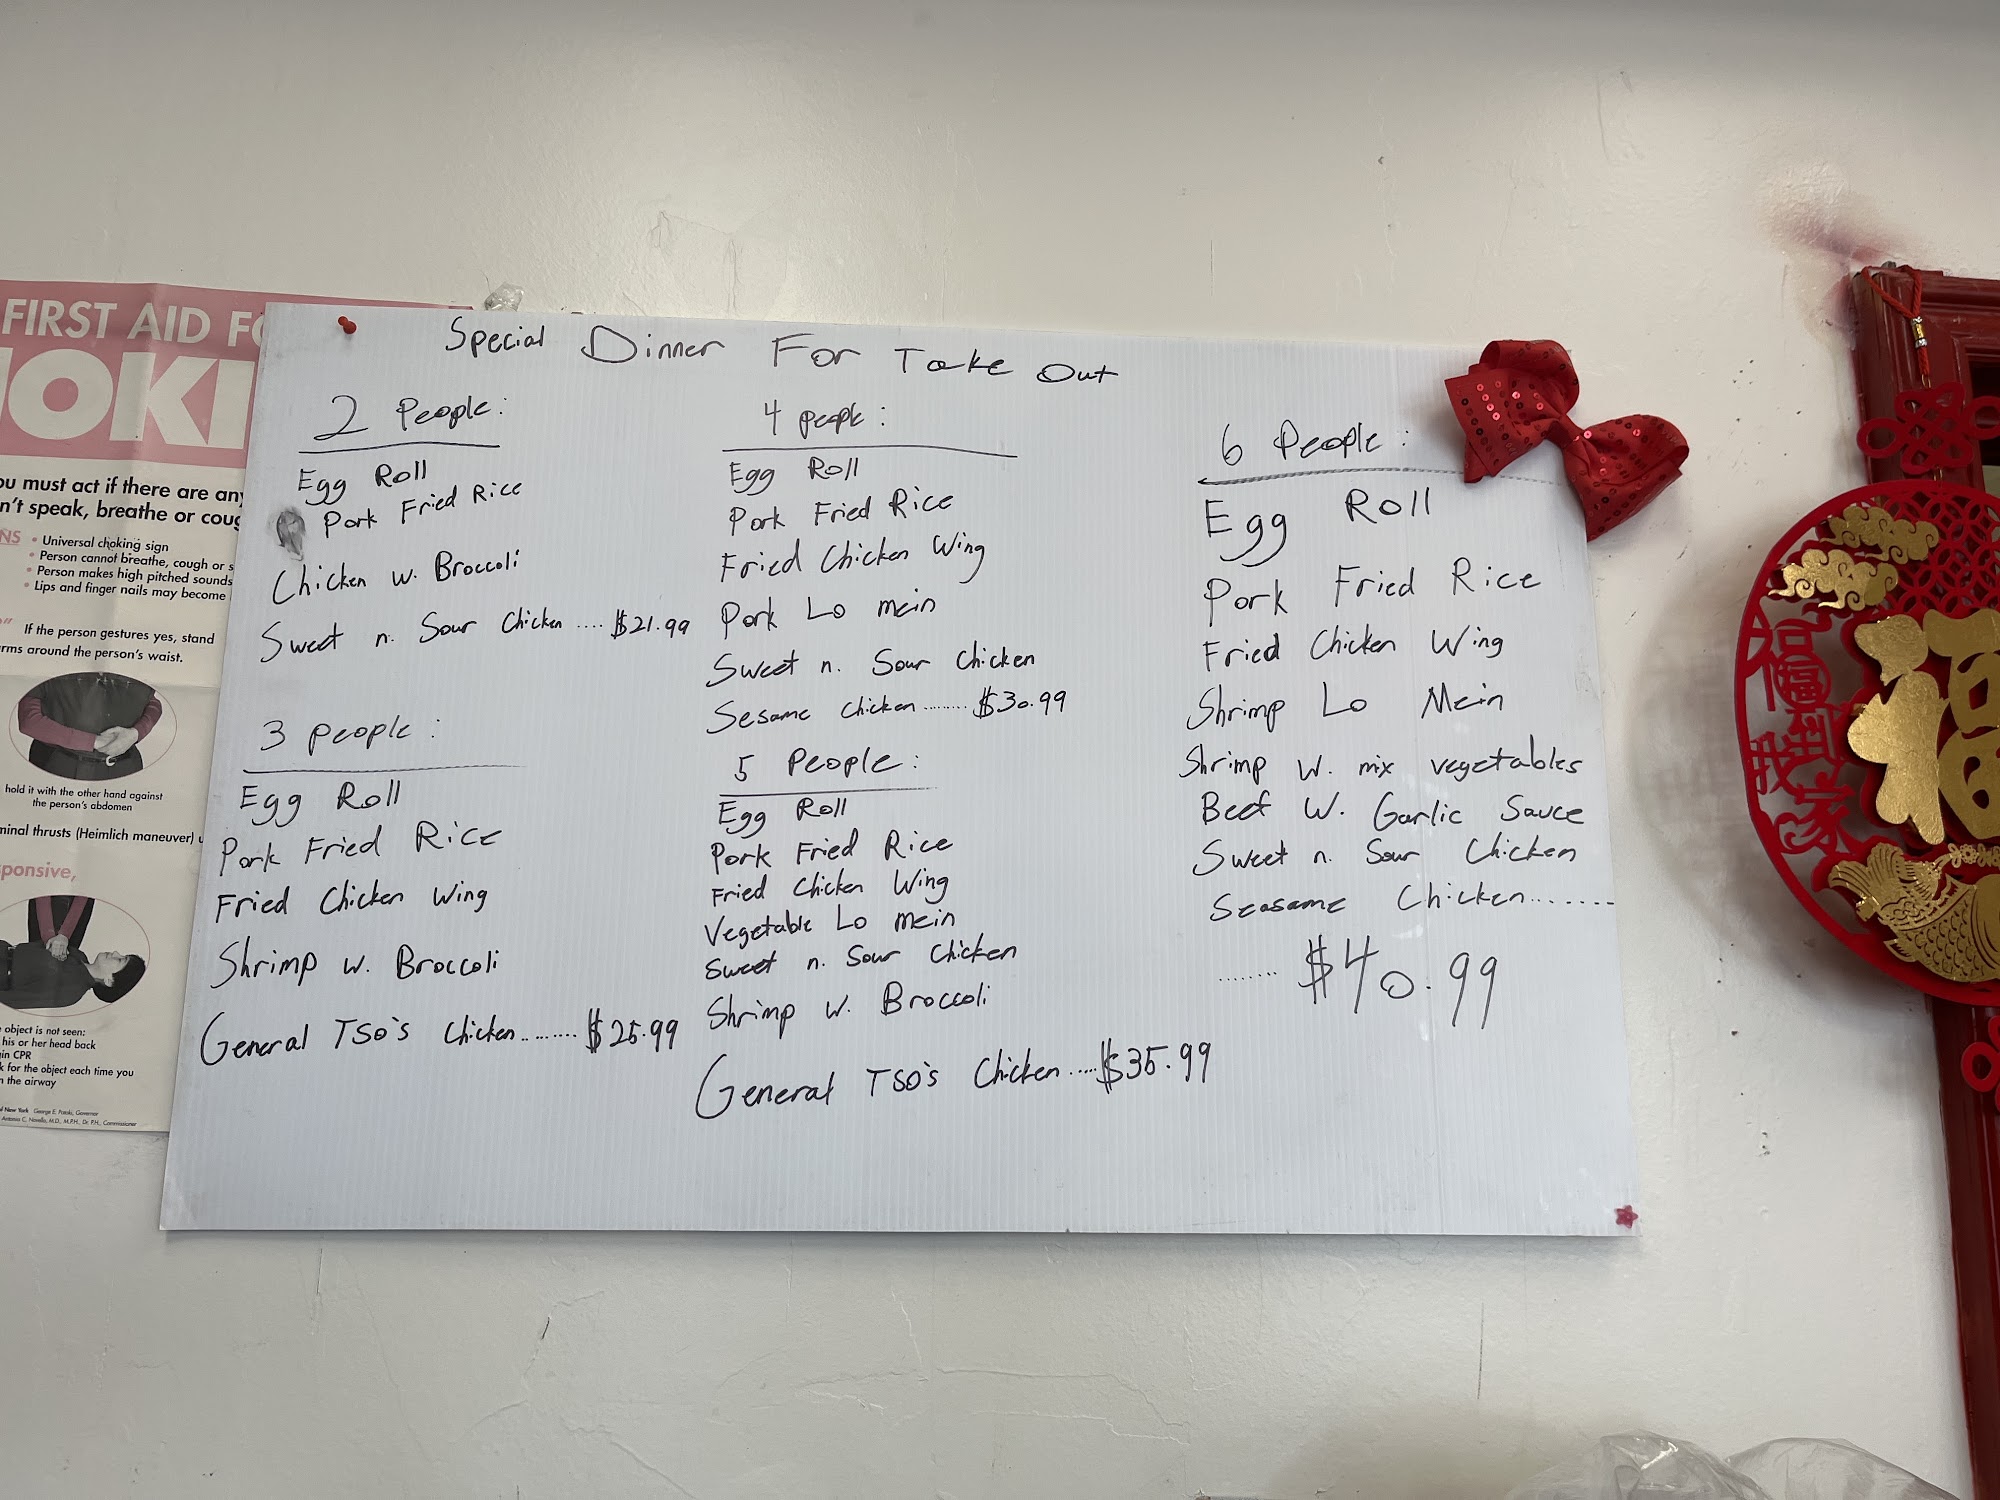 FIRST AID FO
OKI
ou must act if there are any
n't speak, breathe or coug
NS
• Universal choking sign
• Person cannot breathe, cough or s
• Person makes high pitched sounds
• Lips and finger nails may become
If the person gestures yes, stand
rms around the person's waist.
hold it with the other hand against
the person's abdomen
minal thrusts (Heimlich maneuver) u
sponsive,
object is not seen:
his or her head back
in CPR
k for the object each time you
n the airway
New York George E. Pataki, Governor
Antonia C. Novello, M.D., M.P.H., Dr. P.H., Commissioner
Special Dinner For Take Out
2 People:
Egg Roll
Pork Fried Rice
Chicken w. Broccoli
Sweet n. Sour Chicken .... $21.99
3 people:
Egg Roll
Pork Fried Rice
Fried Chicken Wing
Shrimp w. Broccoli
General TSO's Chicken ........ $25.99
4 people:
Egg Roll
Pork Fried Rice
Fried Chicken Wing
Pork Lo mein
Sweet n. Sour Chicken
Sesame Chicken ........ $30.99
5 People:
Egg Roll
Pork Fried Rice
Fried Chicken Wing
Vegetable Lo mein
Sweet n. Sour Chicken
Shrimp w. Broccoli
General TSO's Chicken ..... $35.99
6 People:
Egg Roll
Pork Fried Rice
Fried Chicken Wing
Shrimp Lo Mein
Shrimp W. mix vegetables
Beef W. Garlic Sauce
Sweet n. Sour Chicken
Seasame Chicken .......
........ $40.99
福